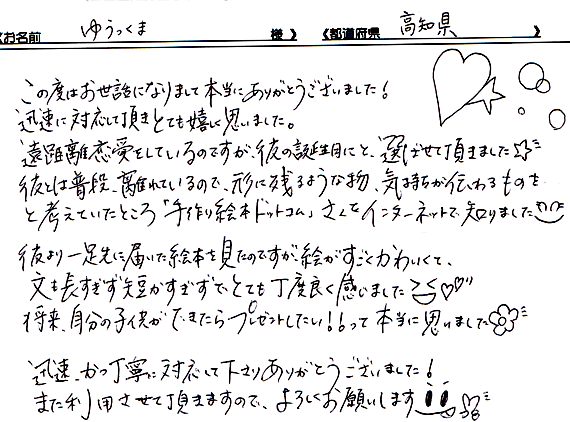 《お名前 ゆうっくま 様 》 《都道府県 高知県 》
この度はお世話になりまして本当にありがとうございました!
迅速に対応して頂きとても嬉しく思いました。
遠距離恋愛をしているのですが、彼の誕生日にと、選ばせて頂きました
彼とは普段、離れているので、形に残るような物、気持ちが伝わるものを
と考えていたところ「手作り絵本ドットコム」さんをインターネットで知りました
彼より一足先に届いた絵本を見たのですが絵がすごくかわいくて、
文も長すぎず短かすぎずで、とても丁度良く感じました
将来、自分の子供ができたらプレゼントしたい!!って本当に思いました
迅速、かつ丁寧に対応して下さりありがとうございました!
また利用させて頂きますので、よろしくお願いします